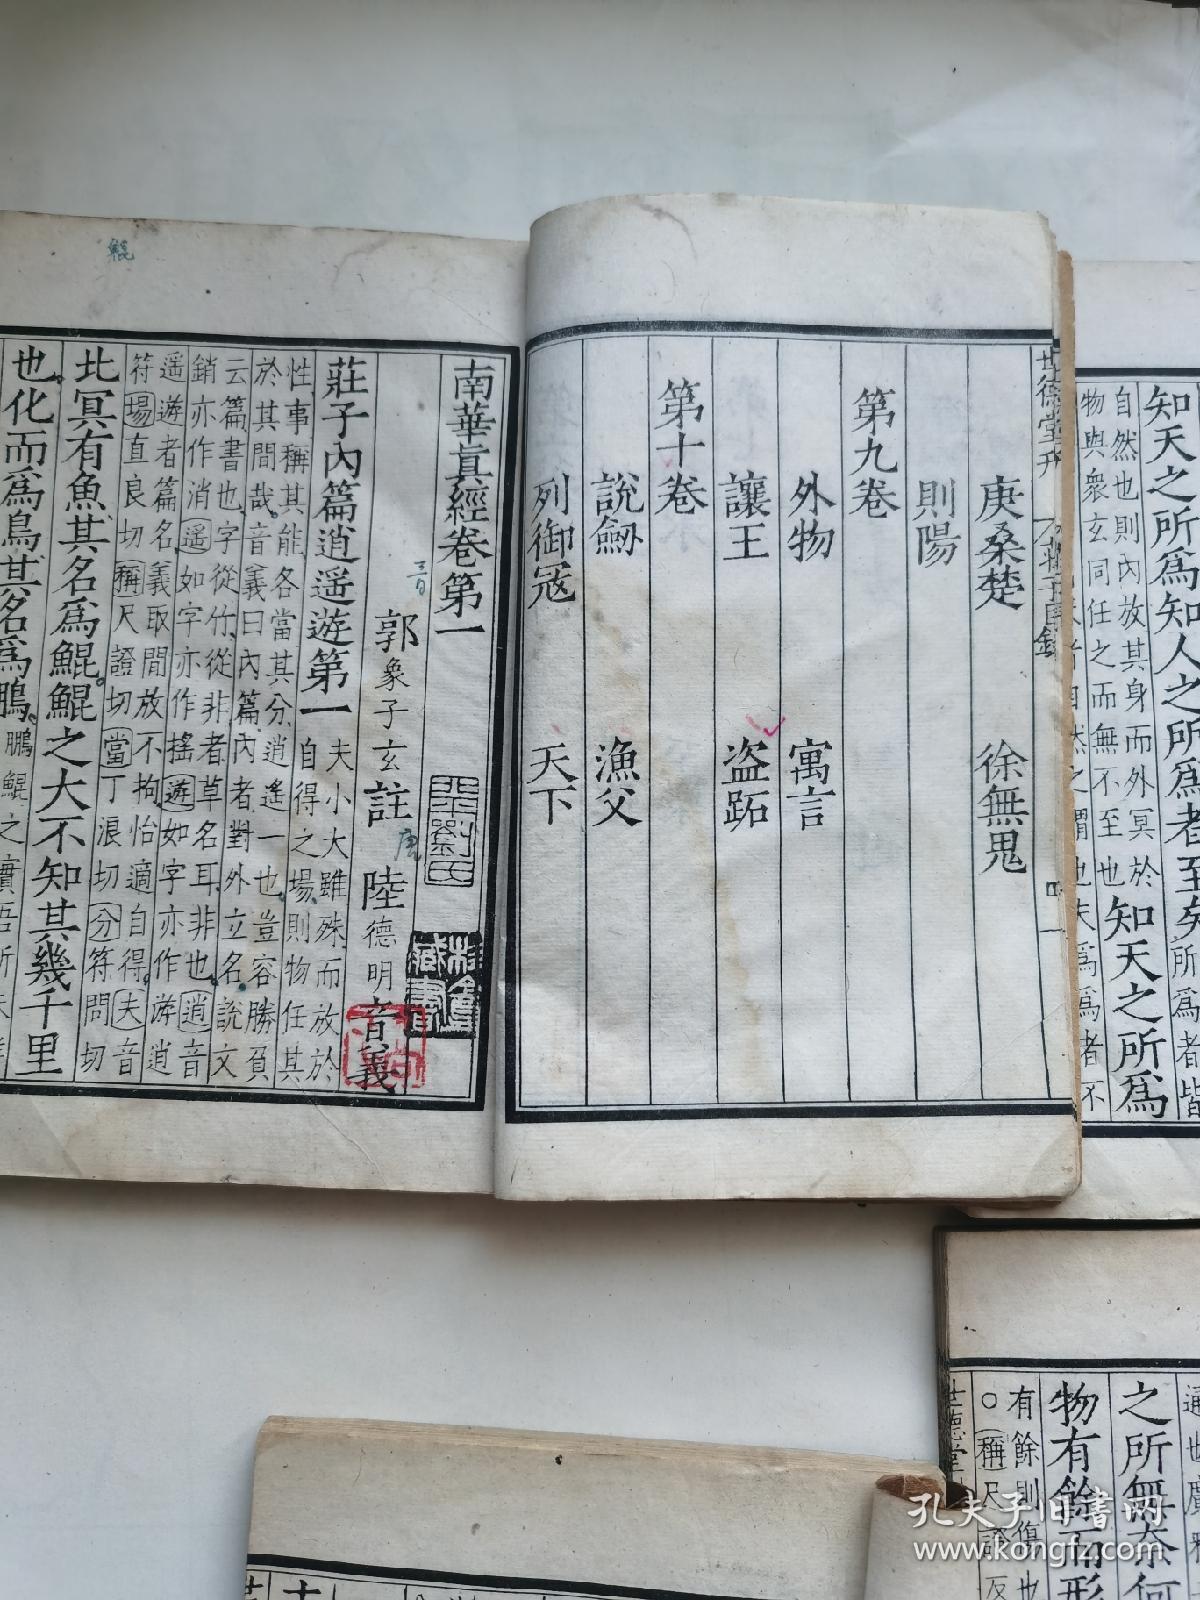 庚桑楚 徐無鬼
則陽
第九卷
外物 寓言
讓王 盗跖
第十卷
說劒 漁父
列御冦 天下
世德堂刊
南華眞經卷第一
郭象子玄註 陸德明音義
莊子內篇逍遥遊第一 夫小大雖殊而放於
自得之場則物任其
性事稱其能各當其分逍遥一也豈容勝負
於其間哉音義曰內篇內者對外立名說文
云篇書也字從竹從非者草名耳非也逍音
銷亦作消遥如字亦作搖遊如字亦作游逍
遥遊者篇名義取閒放不拘怡適自得夫音
符場直良切稱尺證切當丁浪切分符問切
北冥有魚其名爲鯤鯤之大不知其幾千里
也化而爲鳥其名爲鵬 鵬鯤之實吾所
鯤
唐
知天之所爲知人之所爲者至矣 所爲者皆
自然也則內放其身而外冥於
物與衆玄同任之而無不至也 知天之所爲
之所無奈何
物有餘而形
有餘則傷也
○稱尺證反
世德堂
孔夫子旧书网
www.kongfz.com